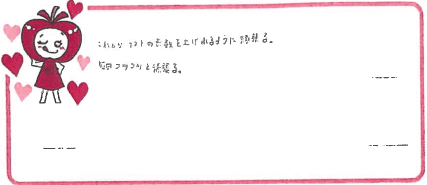 これから テストの点数を上げれるように頑張る。
毎日コツコツと頑張る。